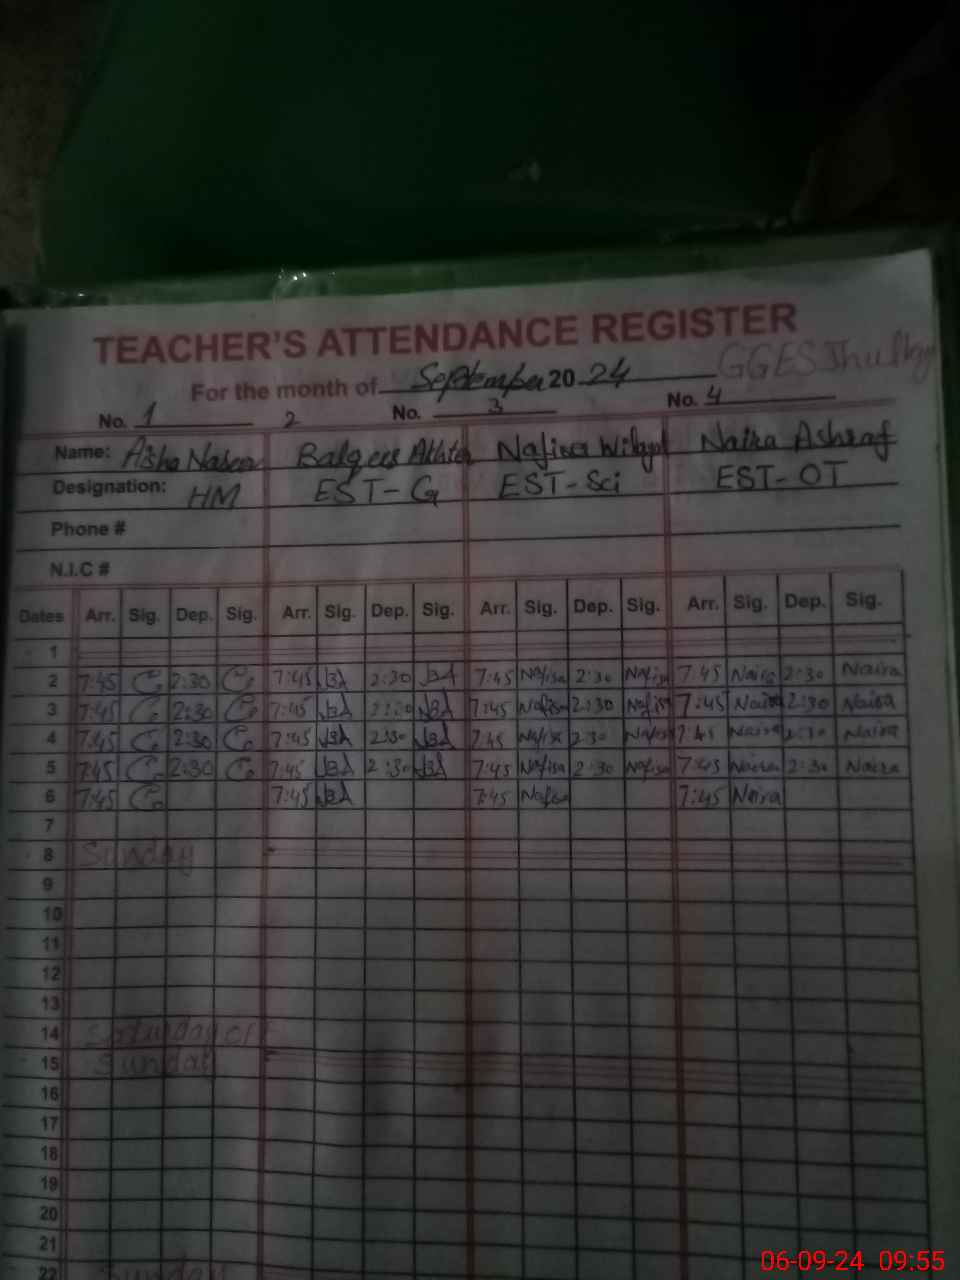 TEACHER'S ATTENDANCE REGISTER
For the month of September 20 24 GGES
No. 1 2 No. 3 No. 4
Name: Aisha Balqees Nafisa Naira Ashraf
Designation: HM EST-G EST-Sci EST-OT
Phone #
N.I.C #
Dates Arr. Sig. Dep. Sig. Arr. Sig. Dep. Sig. Arr. Sig. Dep. Sig. Arr. Sig. Dep. Sig.
1
2 7:45 2:30 7:45 BA 2:30 BA 7:45 Nafisa 2:30 Nafisa 7:45 Naira 2:30 Naira
3 7:45 2:30 7:45 BA 2:30 BA 7:45 Nafisa 2:30 Nafisa 7:45 Naira 2:30 Naira
4 7:45 2:30 7:45 BA 2:30 BA 7:45 Nafisa 2:30 Nafisa 7:45 Naira 2:30 Naira
5 7:45 2:30 7:45 BA 2:30 BA 7:45 Nafisa 2:30 Nafisa 7:45 Naira 2:30 Naira
6 7:45 7:45 BA 7:45 Nafisa 7:45 Naira
7
8 Sunday
9
10
11
12
13
14 Saturday off
15 Sunday
16
17
18
19
20
21
22 Sunday
06-09-24 09:55